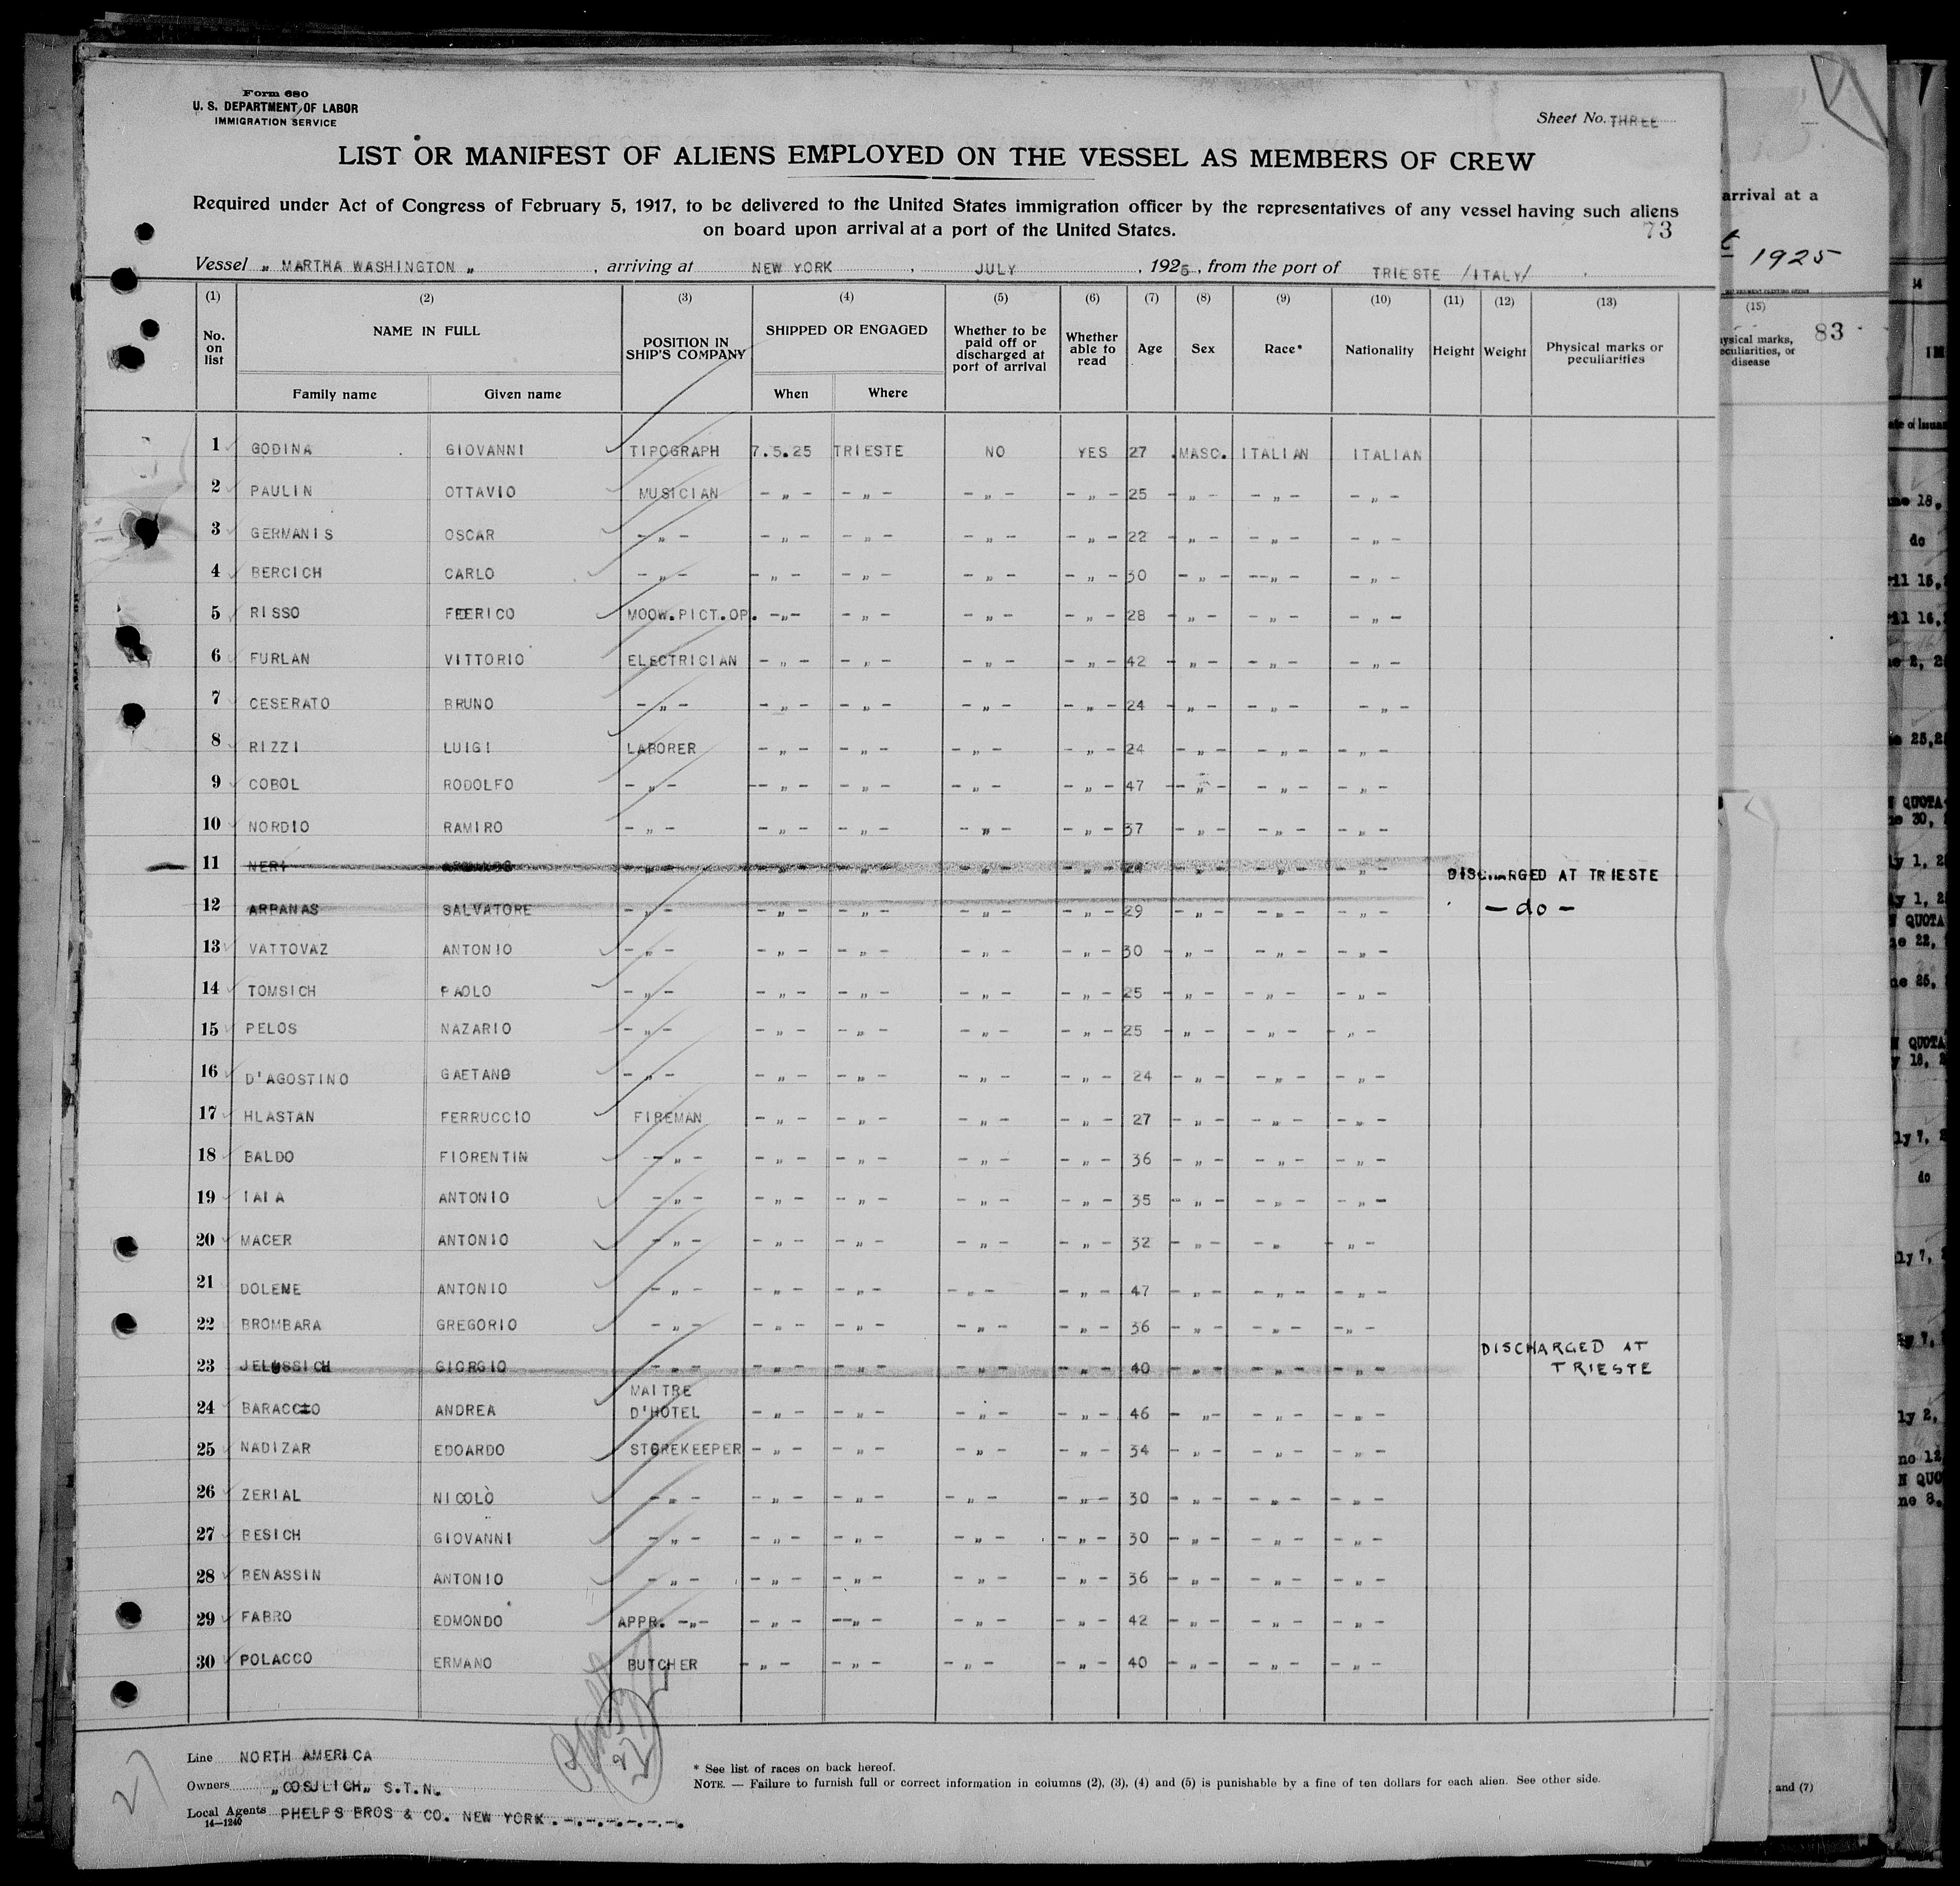 Form 680
U. S. DEPARTMENT OF LABOR
IMMIGRATION SERVICE
Sheet No. THREE
LIST OR MANIFEST OF ALIENS EMPLOYED ON THE VESSEL AS MEMBERS OF CREW
Required under Act of Congress of February 5, 1917, to be delivered to the United States immigration officer by the representatives of any vessel having such aliens
on board upon arrival at a port of the United States.
73
Vessel „ MARTHA WASHINGTON „, arriving at NEW YORK, JULY, 1925, from the port of TRIESTE /ITALY/
(1) (2) (3) (4) (5) (6) (7) (8) (9) (10) (11) (12) (13)
No. on list NAME IN FULL Family name Given name POSITION IN SHIP'S COMPANY SHIPPED OR ENGAGED When Where Whether to be paid off or discharged at port of arrival Whether able to read Age Sex Race* Nationality Height Weight Physical marks or peculiarities
1 GODINA GIOVANNI TIPOGRAPH 7.5.25 TRIESTE NO YES 27 MASC. ITALIAN ITALIAN
2 PAULIN OTTAVIO MUSICIAN -„- -„- -„- -„- 25 -„- -„- -„-
3 GERMANIS OSCAR -„- -„- -„- -„- -„- 22 -„- -„- -„-
4 BERCICH CARLO -„- -„- -„- -„- -„- 30 -„- -„- -„-
5 RISSO FEDERICO MOOW.PICT.OP. -„- -„- -„- -„- 28 -„- -„- -„-
6 FURLAN VITTORIO ELECTRICIAN -„- -„- -„- -„- 42 -„- -„- -„-
7 CESERATO BRUNO -„- -„- -„- -„- -„- 24 -„- -„- -„-
8 RIZZI LUIGI LABORER -„- -„- -„- -„- 24 -„- -„- -„-
9 COBOL RODOLFO -„- -„- -„- -„- -„- 47 -„- -„- -„-
10 NORDIO RAMIRO -„- -„- -„- -„- -„- 37 -„- -„- -„-
11 NERI -„- -„- -„- -„- -„- -„- -„- -„- DISCHARGED AT TRIESTE
12 ARPANAS SALVATORE -„- -„- -„- -„- -„- 29 -„- -„- -„- - do -
13 VATTOVAZ ANTONIO -„- -„- -„- -„- -„- 30 -„- -„- -„-
14 TOMSICH PAOLO -„- -„- -„- -„- -„- 25 -„- -„- -„-
15 PELOS NAZARIO -„- -„- -„- -„- -„- 25 -„- -„- -„-
16 D'AGOSTINO GAETANO -„- -„- -„- -„- -„- 24 -„- -„- -„-
17 HLASTAN FERRUCCIO FIREMAN -„- -„- -„- -„- 27 -„- -„- -„-
18 BALDO FIORENTIN -„- -„- -„- -„- -„- 36 -„- -„- -„-
19 IAIA ANTONIO -„- -„- -„- -„- -„- 35 -„- -„- -„-
20 MACER ANTONIO -„- -„- -„- -„- -„- 32 -„- -„ -„-
21 DOLENE ANTONIO -„- -„- -„- -„- -„- 47 -„- -„- -„-
22 BROMBARA GREGORIO -„- -„- -„- -„- -„- 36 -„- -„- -„-
23 JELUSSICH GIORGIO -„- -„- -„- -„- -„- 40 -„- -„- -„- DISCHARGED AT TRIESTE
24 BARACCIO ANDREA MAITRE D'HOTEL -„- -„- -„- -„- 46 -„- -„- -„-
25 NADIZAR EDOARDO STOREKEEPER -„- -„- -„- -„- 34 -„- -„- -„-
26 ZERIAL NICOLÒ -„- -„- -„- -„- -„- 30 -„- -„- -„-
27 BESICH GIOVANNI -„- -„- -„- -„- -„- 30 -„- -„- -„-
28 BENASSIN ANTONIO -„- -„- -„- -„- -„- 36 -„- -„- -„-
29 FABRO EDMONDO APPR. -„- -„- -„- -„- -„- 42 -„- -„- -„-
30 POLACCO ERMANO BUTCHER -„- -„- -„- -„- 40 -„- -„- -„-
27
Line NORTH AMERICA
Owners „COSULICH„ S.T.N.
Local Agents PHELPS BROS & CO. NEW YORK .-.-.-.-.-.-.
14—1240
* See list of races on back hereof.
NOTE. — Failure to furnish full or correct information in columns (2), (3), (4) and (5) is punishable by a fine of ten dollars for each alien. See other side.
arrival at a
1925
(15)
83
disease
and (7)